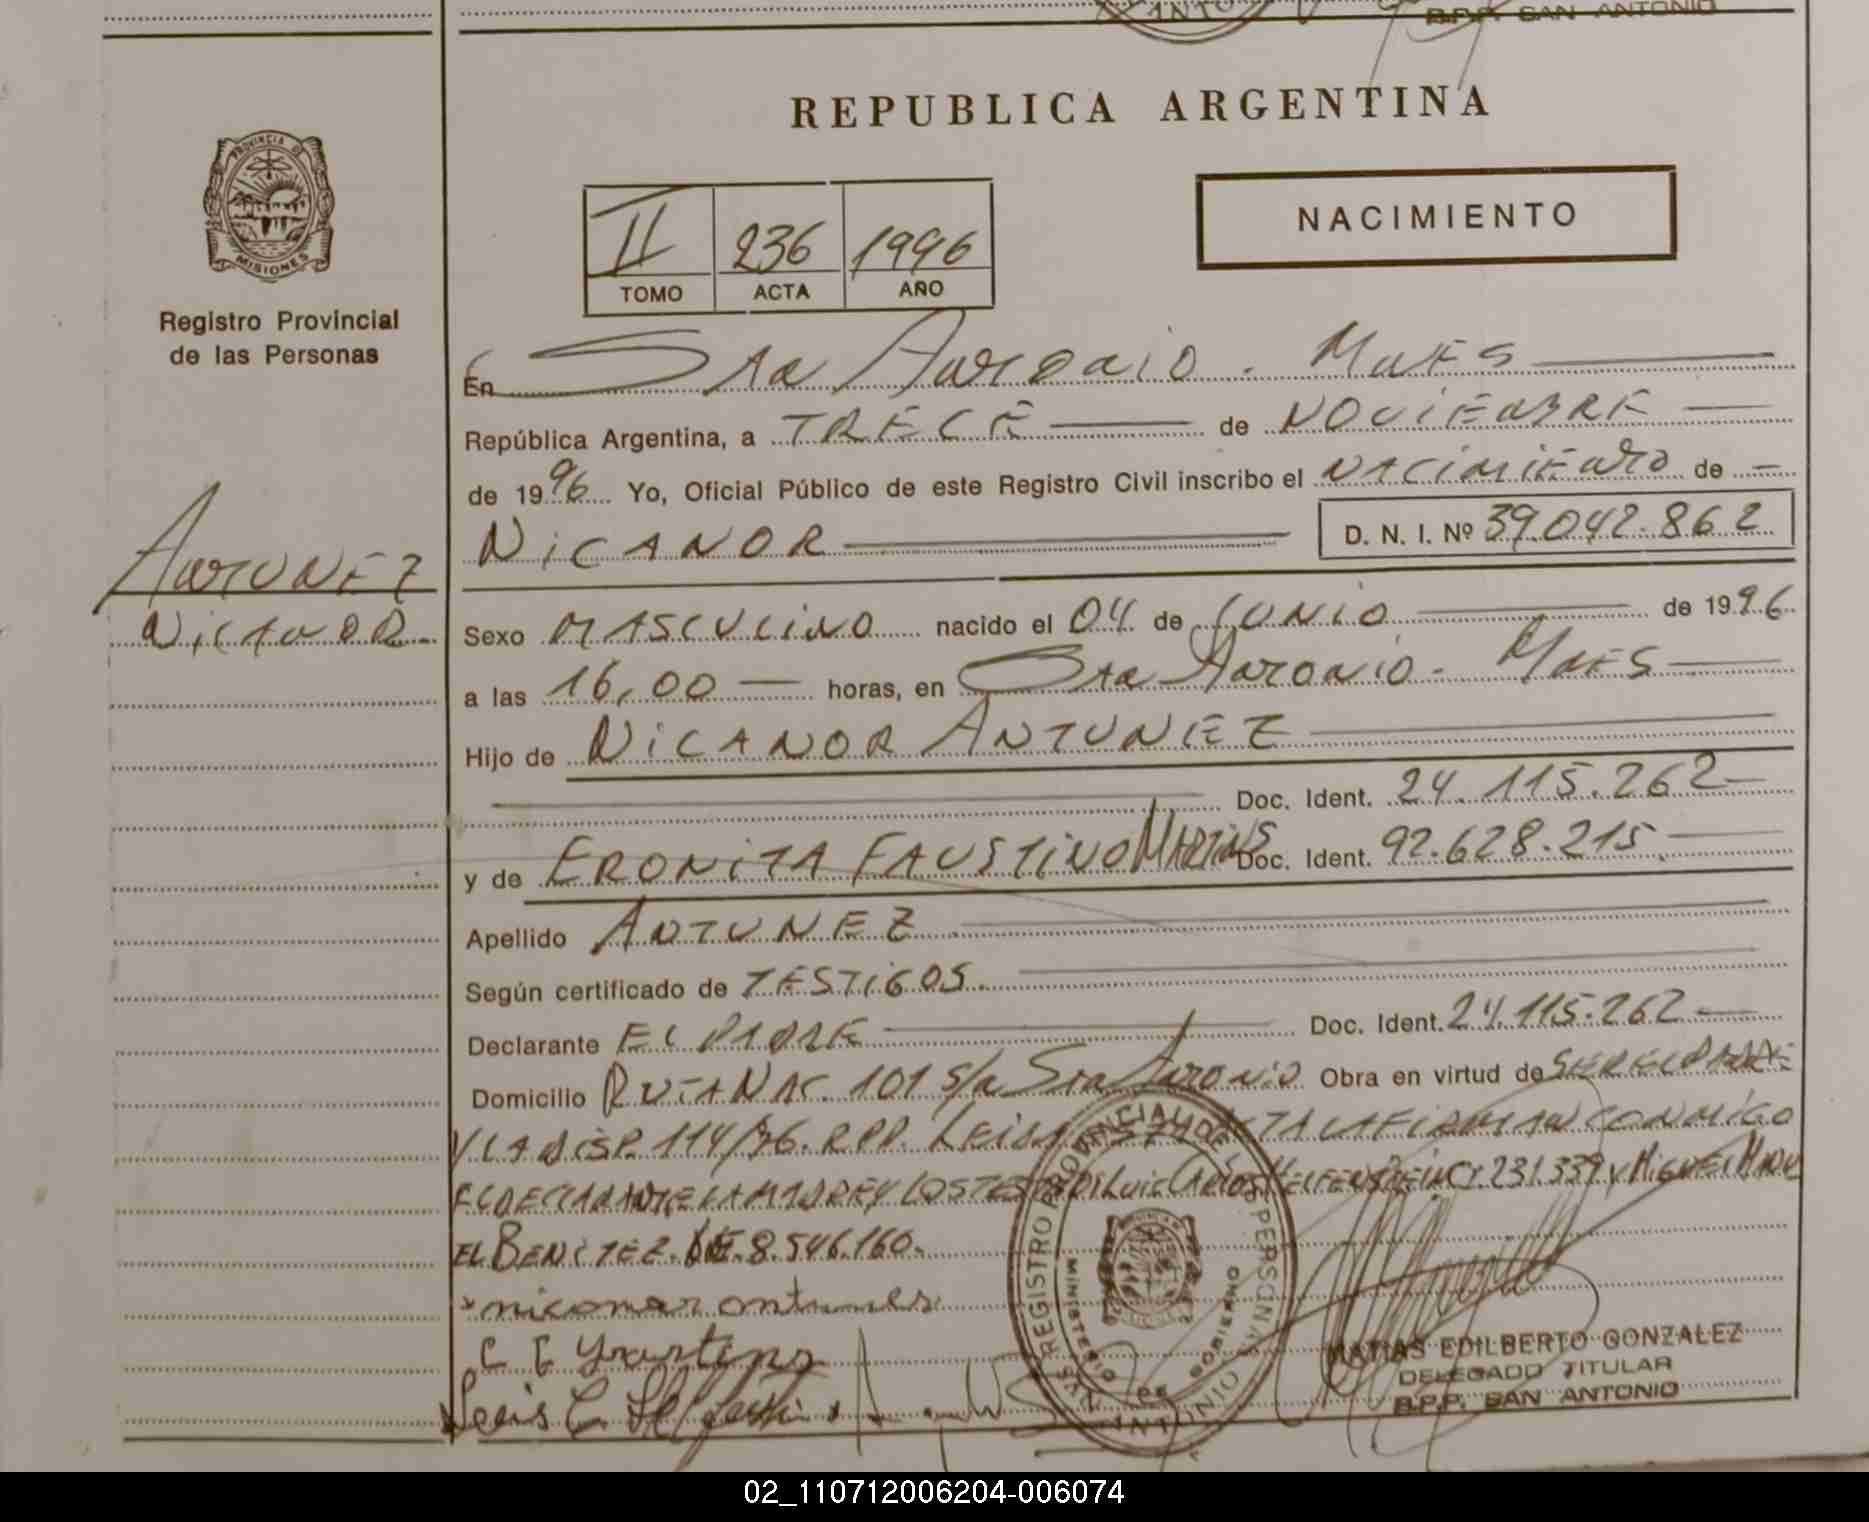 SAN ANTONIO
REPUBLICA ARGENTINA
PROVINCIA DE
MISIONES
Registro Provincial
de las Personas
II 236 1996
TOMO ACTA AÑO
NACIMIENTO
En San Antonio - Mnes
República Argentina, a TRECE de NOVIEMBRE
de 1996 Yo, Oficial Público de este Registro Civil inscribo el NACIMIENTO de
NICANOR D. N. I. Nº 39.042.862
ANTUNEZ
NICANOR
Sexo MASCULINO nacido el 04 de JUNIO de 1996
a las 16,00 horas, en San Antonio - Mnes
Hijo de NICANOR ANTUNEZ
Doc. Ident. 24.115.262
y de ERONITA FAUSTINO MARTINS Doc. Ident. 92.628.215
Apellido ANTUNEZ
Según certificado de TESTIGOS.
Declarante EL PADRE Doc. Ident. 24.115.262
Domicilio RUTA NAC. 101 s/n San Antonio Obra en virtud de SER EL PADRE
Y LA DISP. 114/96. RPP. LEIDA ACTA LA FIRMAN CONMIGO
EL DECLARANTE LA MADRE Y LOS Luis Carlos CI. 231.339 Y MIGUEL
EL BENITEZ. 8.546.160.
nicanor antunes
REGISTRO PROVINCIAL DE PERSONAS
MINISTERIO DE GOBIERNO
MATIAS EDILBERTO GONZALEZ
DELEGADO TITULAR
R.P.P. SAN ANTONIO
02_110712006204-006074